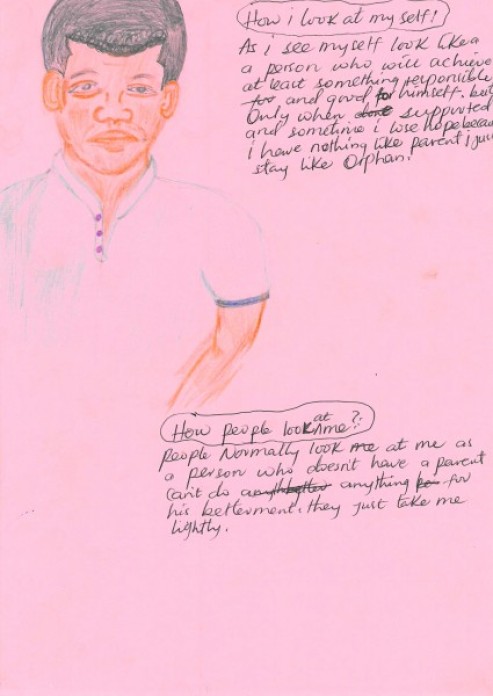 How i look at my self!
As i see myself look like a
a person who will achieve
at least something responsible
for and good for himself. but
Only when supported
and sometime i lose hope becau
i have nothing like parent i jus
stay like Orphan.
How people look at me?:
people Normally look me at me as
a person who doesn't have a parent
can't do anything for
his betterment. they just take me
lightly.